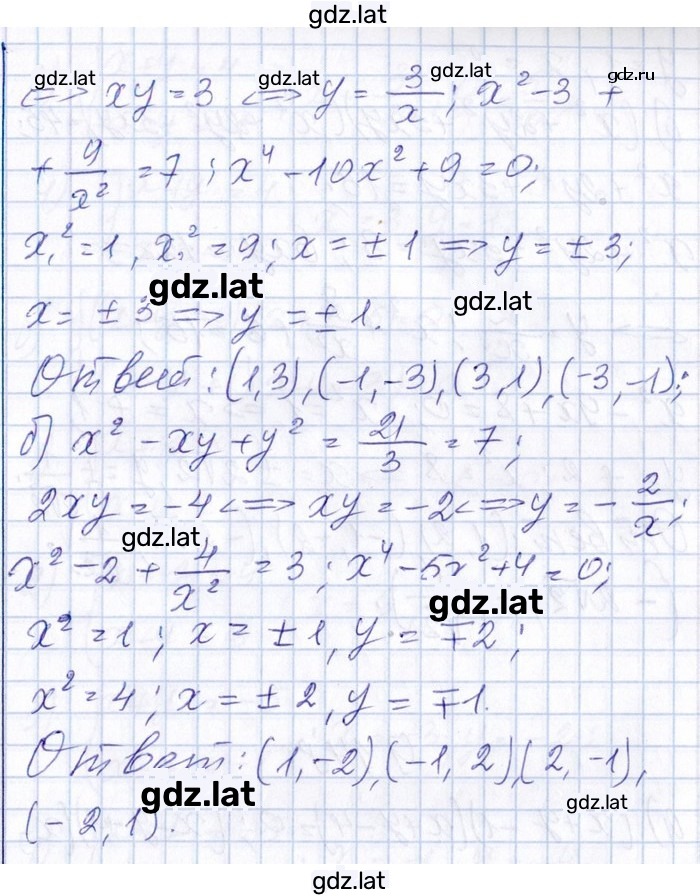 gdz.lat
gdz.lat gdz.lat gdz.lat gdz.ru
<=> xy = 3 <=> y = 3/x; x² - 3 +
+ 9/x² = 7; x⁴ - 10x² + 9 = 0;
x₁² = 1, x₂² = 9; x = ± 1 => y = ± 3;
gdz.lat gdz.lat
x = ± 3 => y = ± 1.
Ответ: (1,3), (-1,-3), (3,1), (-3,-1);
б) x² - xy + y² = 21/3 = 7;
2xy = -4 <=> xy = -2 <=> y = - 2/x;
gdz.lat
x² - 2 + 4/x² = 3; x⁴ - 5x² + 4 = 0;
gdz.lat
x² = 1; x = ± 1, y = ∓2;
x² = 4; x = ± 2, y = ∓1.
Ответ: (1,-2), (-1, 2), (2, -1),
gdz.lat gdz.lat
(-2, 1).
gdz.lat